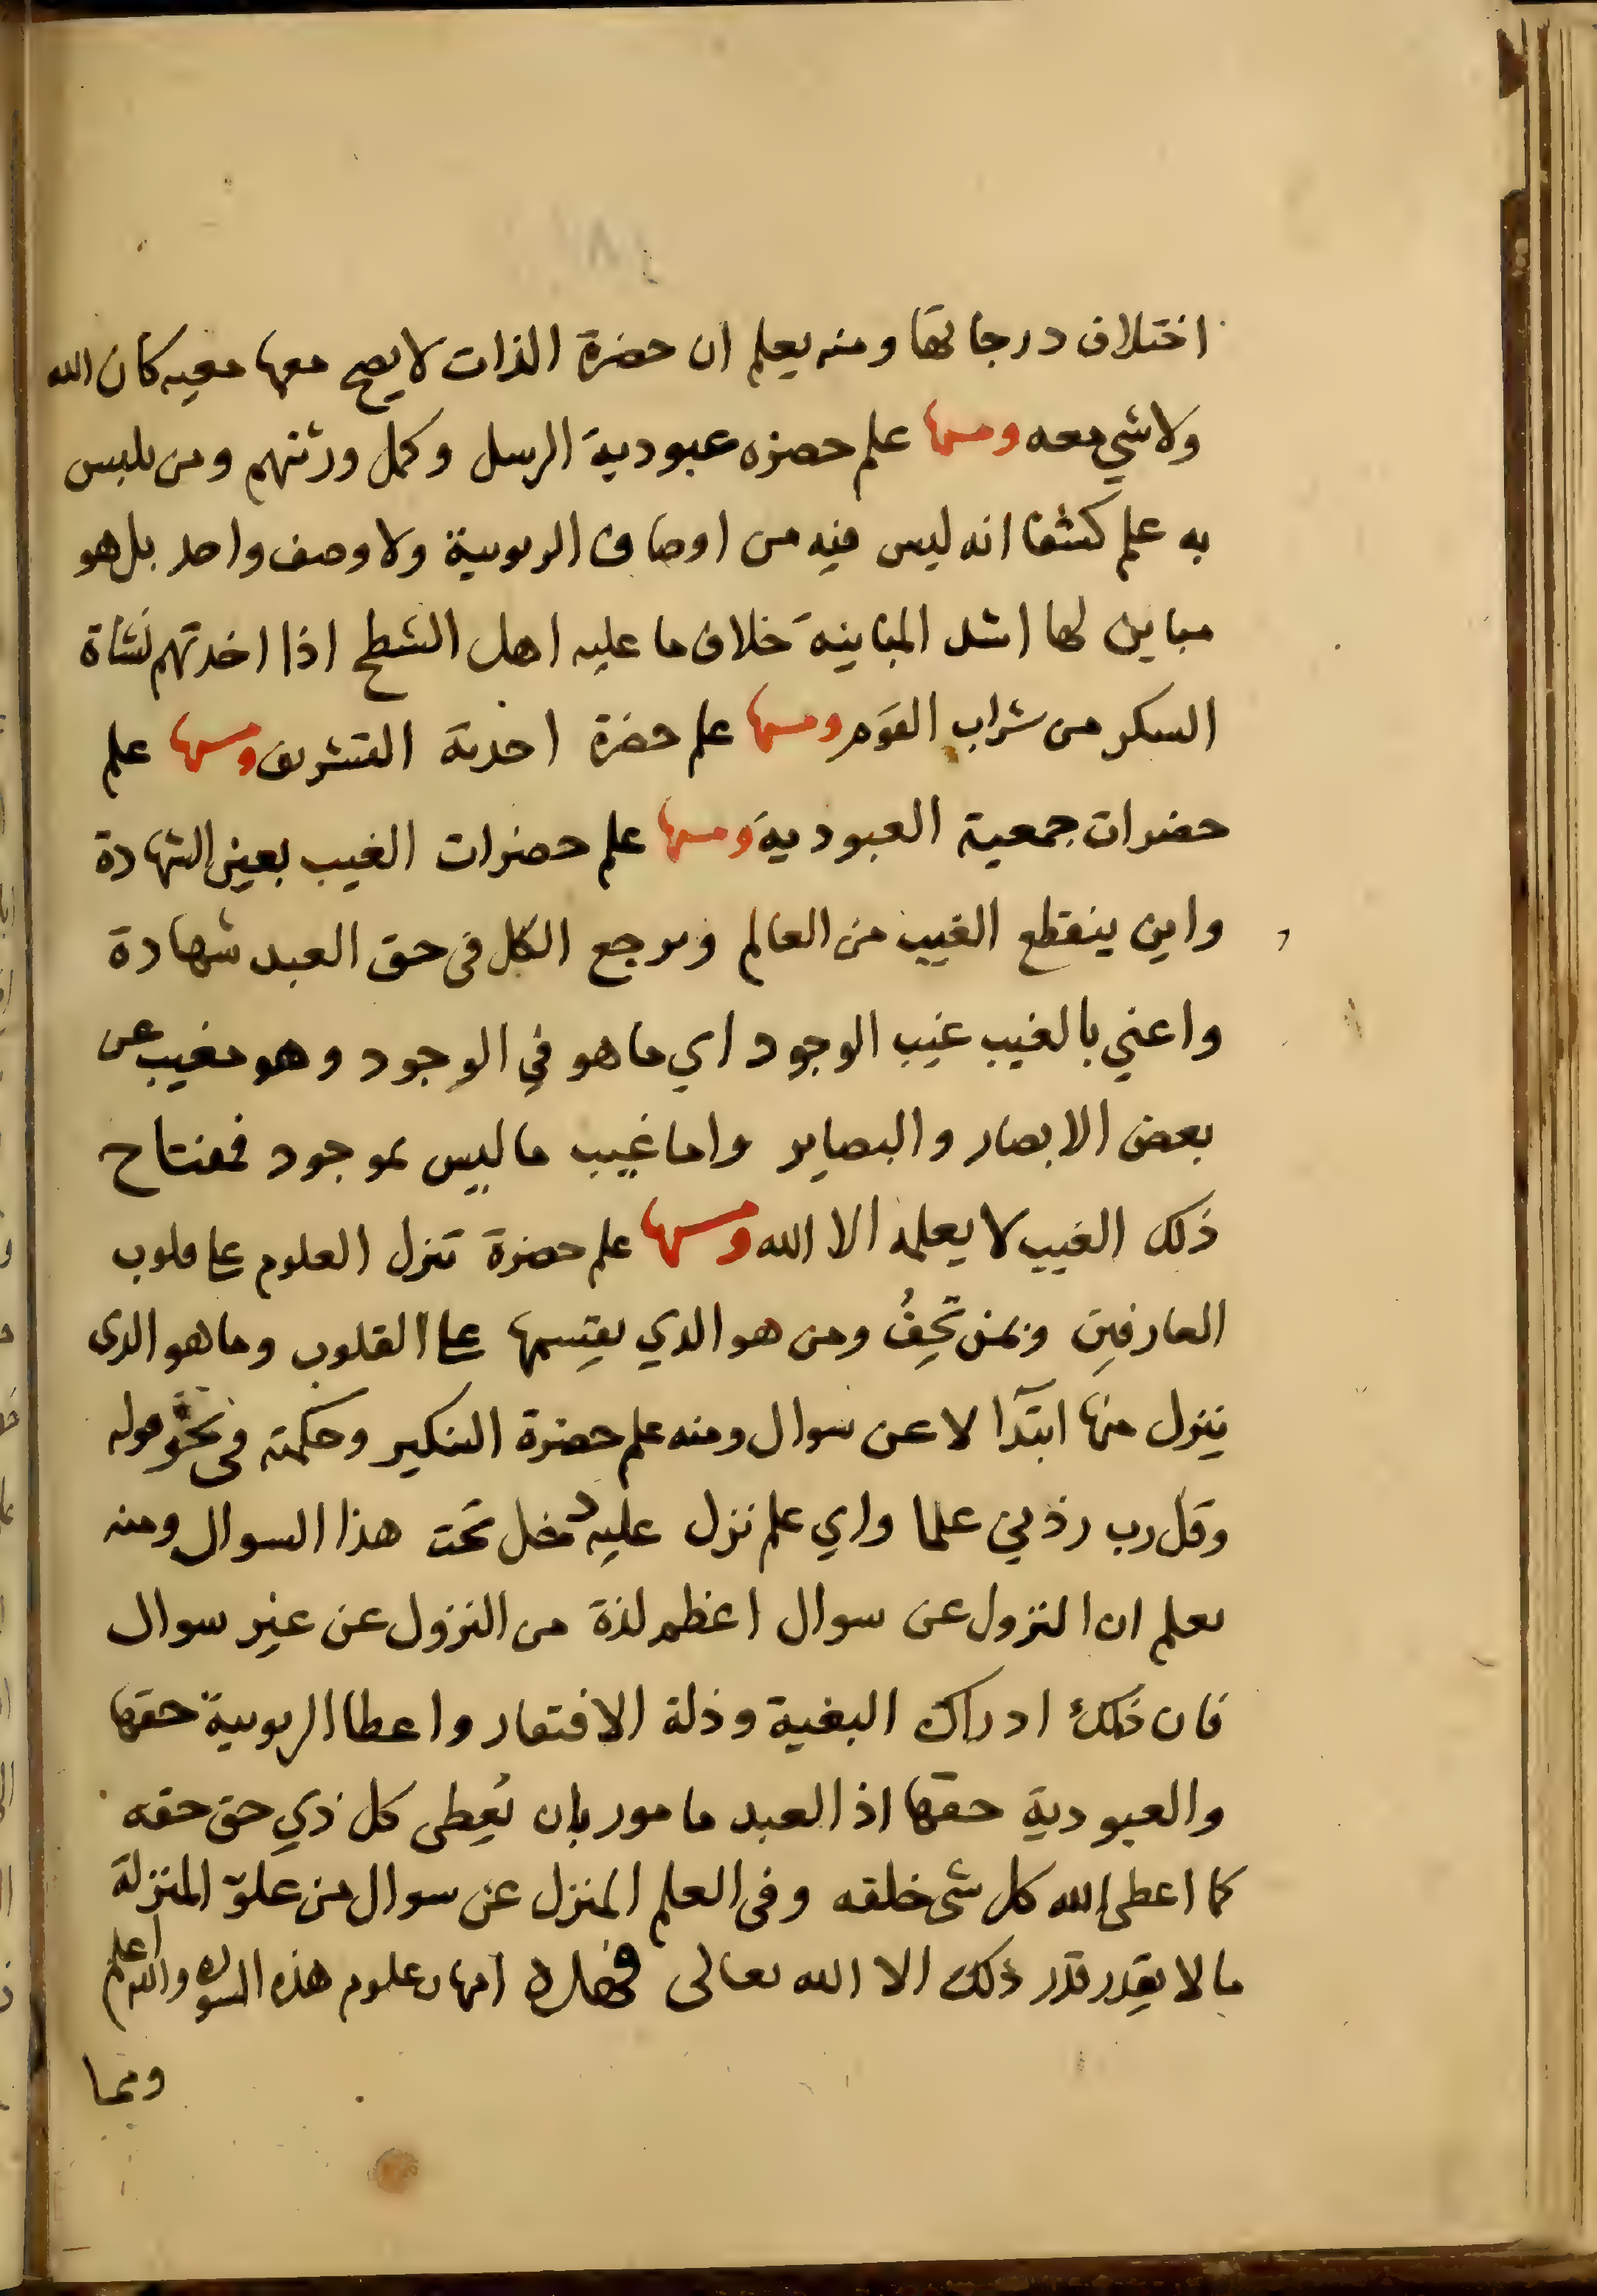 اختلاف درجاتها ومنه يعلم ان حضرة الذات لايصح معها معيه كان الله
ولا شي معه ومنها علم حضره عبودية الرسل وكمل ورثتهم ومن تلبس
به علم كشفا انه ليس فيه من اوصاف الربوبية ولا وصف واحد بل هو
مباين لها اشد المباينة خلاف ما عليه اهل الشطح اذا اخذتهم نشاة
السكر من شراب القوم ومنها علم حضرة احدية التشريف ومنها علم
حضرات جمعية العبودية ومنها علم حضرات الغيب بعين الشهادة
واين ينقطع الغيب من العالم ويرجع الكل في حق العبد شهادة
واعني بالغيب غيب الوجود اي ما هو في الوجود وهو مغيب عن
بعض الابصار والبصاير واما غيب ما ليس بموجود فمفتاح
ذلك الغيب لا يعلمه الا الله ومنها علم حضرة تنزل العلوم على قلوب
العارفين وبمن تحف ومن هو الذي يقسمها على القلوب وما هو الذي
ينزل منها ابتدا لا عن سوال ومنه علم حضرة التنكير وحكمته في نحو قوله
وقل رب زدني علما واي علم نزل عليه دخل تحت هذا السوال ومنه
يعلم ان النزول عن سوال اعظم لذة من النزول عن غير سوال
فان ذلك ادراك البغية وذلة الافتقار واعطا الربوبية حقها
والعبودية حقها اذ العبد مامور بان يعطى كل ذي حق حقه
كما اعطى الله كل شي خلقه وفي العلم المنزل عن سوال من علو المنزلة
ما لا يقدر قدر ذلك الا الله تعالى فهذه امهات علوم هذه السورة والله اعلم
ومما